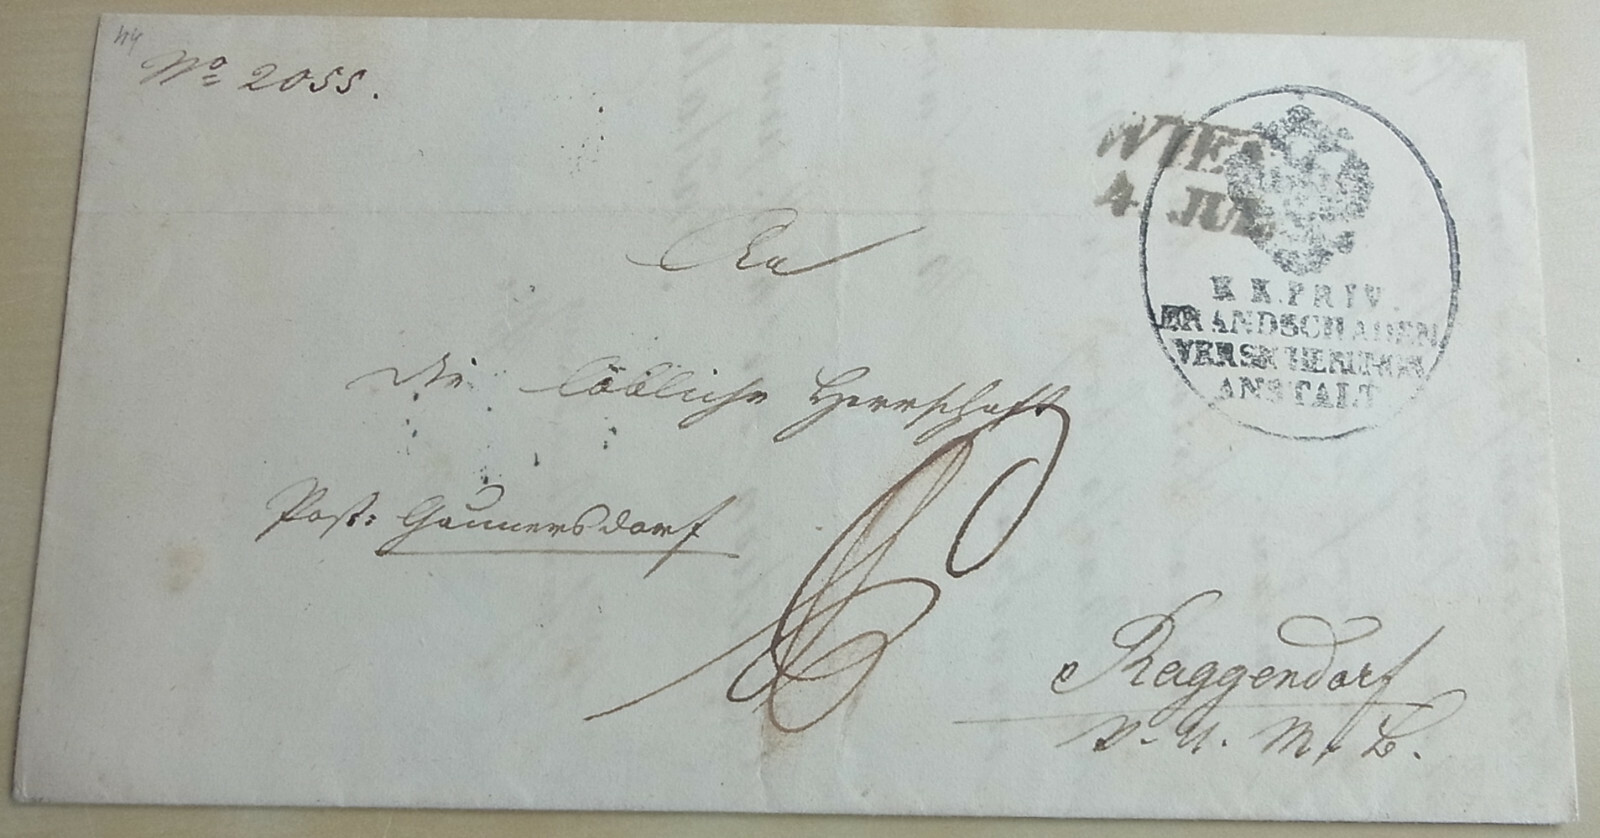 44
No 2055.
WIEN
4. JUL.
K.K.PRIV.
BRANDSCHADEN
VERSICHERUNGS
ANSTALT
An
die löbliche Herrschaft
Post: Gaunersdorf
Raggendorf
V. U. M. B.